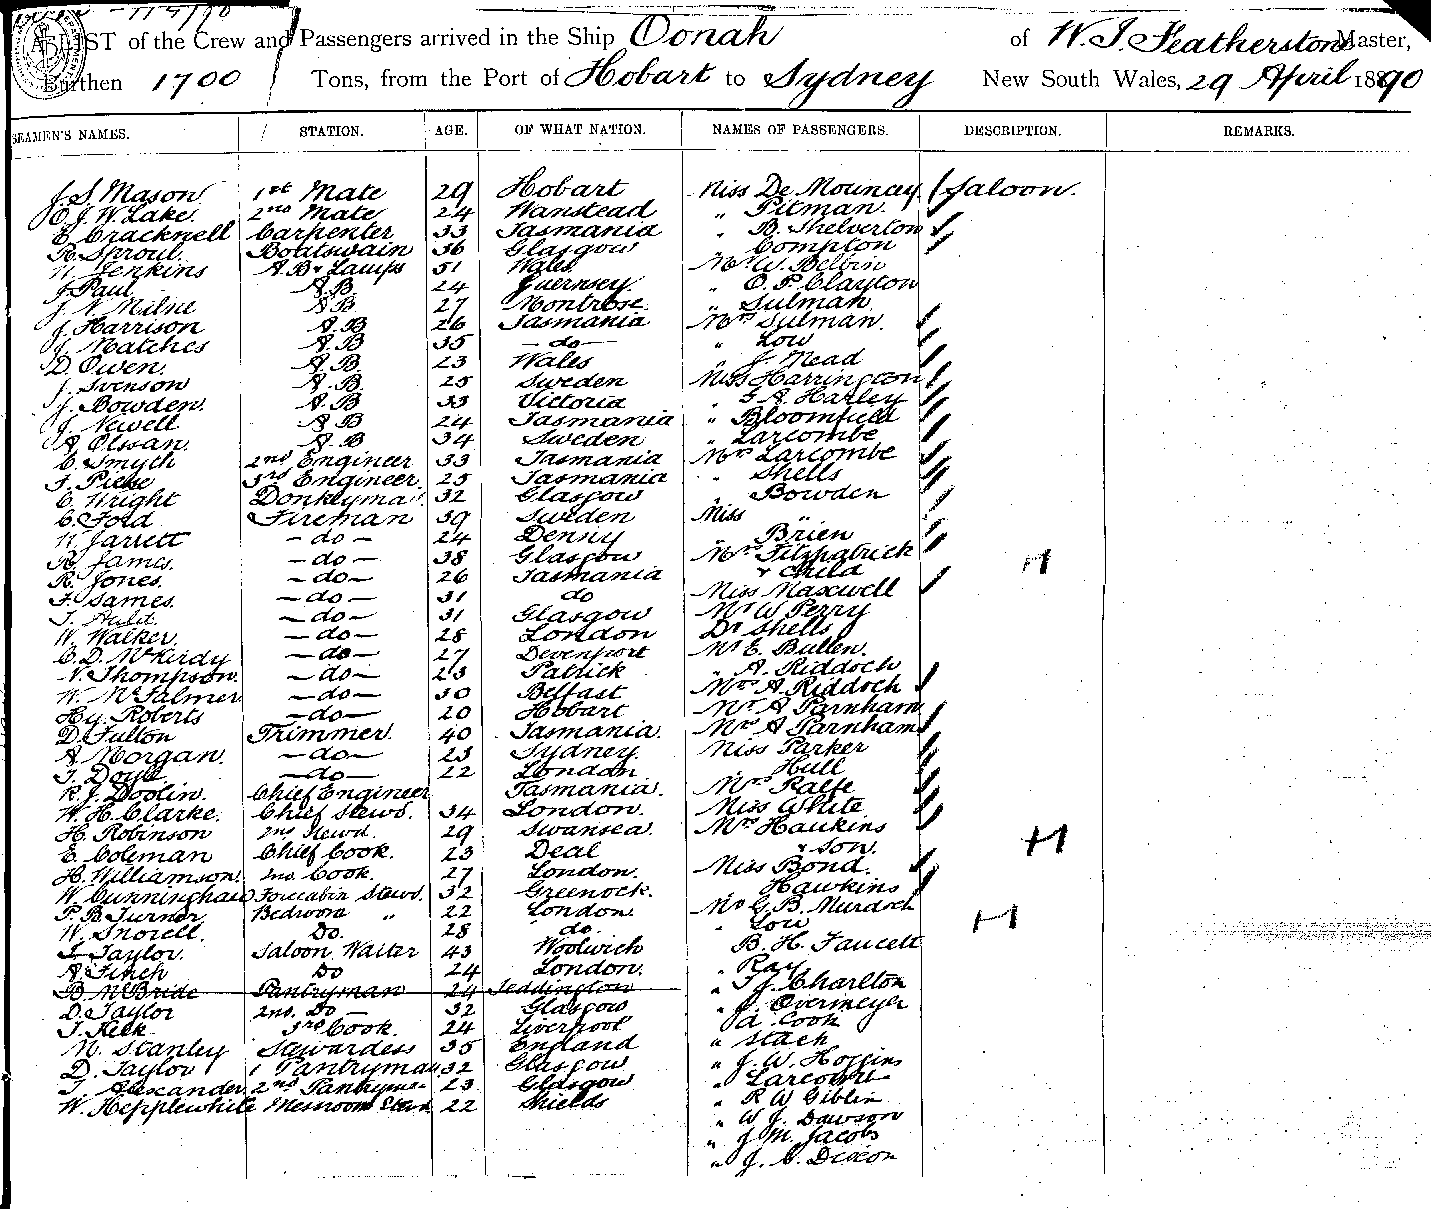 A LIST of the Crew and Passengers arrived in the Ship Oonah of W. J. Featherstone Master,
Burthen 1700 Tons, from the Port of Hobart to Sydney New South Wales, 29 April 1890
SEAMEN'S NAMES. STATION. AGE. OF WHAT NATION. NAMES OF PASSENGERS. DESCRIPTION. REMARKS.
J. S. Mason 1st Mate 29 Hobart Miss De Mouncey Saloon.
O. J. W. Lake. 2nd Mate 24 Wanstead " Pitman.
E. Cracknell Carpenter 33 Tasmania " B. Shelverton
R. Sproul. Boatswain 36 Glasgow Compton
H. Jenkins A.B & Lamps 51 Wales. Mr W. Belbin
J. Paul A.B. 24 Guernsey. " O. P. Clayton
J. N. Milne A B 27 Montrose. " Sulman
J. Harrison A.B 26 Tasmania Mrs Sulman.
J. Matches A.B 35 — do — " Low
D. Owen. A.B. 23 Wales " J. Mead
J. Svenson A.B. 25 Sweden Miss Harrington
J. Bowden. A.B 33 Victoria " A. Harley
J. Newell A B 24 Tasmania " Bloomfield
A. Olssan. A.B 34 Sweden " Larcombe
C. Smych 2nd Engineer 33 Tasmania Mrs Larcombe
3rd Engineer. 25 Tasmania " Shells
C. Wright Donkeyman 32 Glasgow " Bowden
C. Ford Fireman 39 Sweden Miss "
H. Jarrett — do — 24 Denny " Brien
R. James. — do — 38 Glasgow Mrs Fitzpatrick
R. Jones. — do — 26 Tasmania & child H
F. Sames. — do — 31 do Miss Maxwell
T. Auld. — do — 31 Glasgow Mr W Perry
W. Walker. — do — 28 London Dr Shells
C. D. McKirdy — do — 27 Devenport Mr E. Bullen.
N. Thompson. — do — 23 Patrick " A. Riddoch
W. McFalmer — do — 30 Belfast Mrs A Riddoch
Hy. Roberts — do — 20 Hobart Mr A Parnham
D. Fulton Trimmer. 40 Tasmania. Mrs A Parnham
A. Morgan. — do — 23 Sydney. Miss Parker
T. Doyle — do — 22 London " Hull
R. J. Doolin. Chief Engineer Tasmania. Mrs Ralfe
W. H. Clarke. Chief Stewd. 34 London. Miss White
H. Robinson 2nd Stewd. 29 Swansea. Mrs Hawkins
E. Coleman Chief Cook. 23 Deal & son. H
H. Williamson. 2nd. Cook. 27 London. Miss Bond.
W. Cunningham Forecabin Stewd. 32 Greenock. Hawkins
P. B. Turner. Bedroom " 22 London Mr G. B. Murdoch
W. Snorell. Do. 28 do. " Low H
J. Taylor. Saloon Waiter 43 Woolwich B. H. Faucett
A. Finch Do 24 London. " Ray
B. McBride Pantryman 24 Teddington " J. Charlton
D. Taylor 2nd. Do — 32 Glasgow " J. Overmeyer
3rd Cook. 24 Liverpool A. Cook
M. Stanley Stewardess 35 England " Stach
D. Taylor 1 Pantryman 32 Glasgow " J. W. Hoggins
T. Alexander 2nd Pantryman 23 Glasgow " Larcombe
W. Hepplewhite Messroom Stewd 22 Shields " R W Giblin
" W J. Dawson
" J. M. Jacobs
" J. C. Dixon